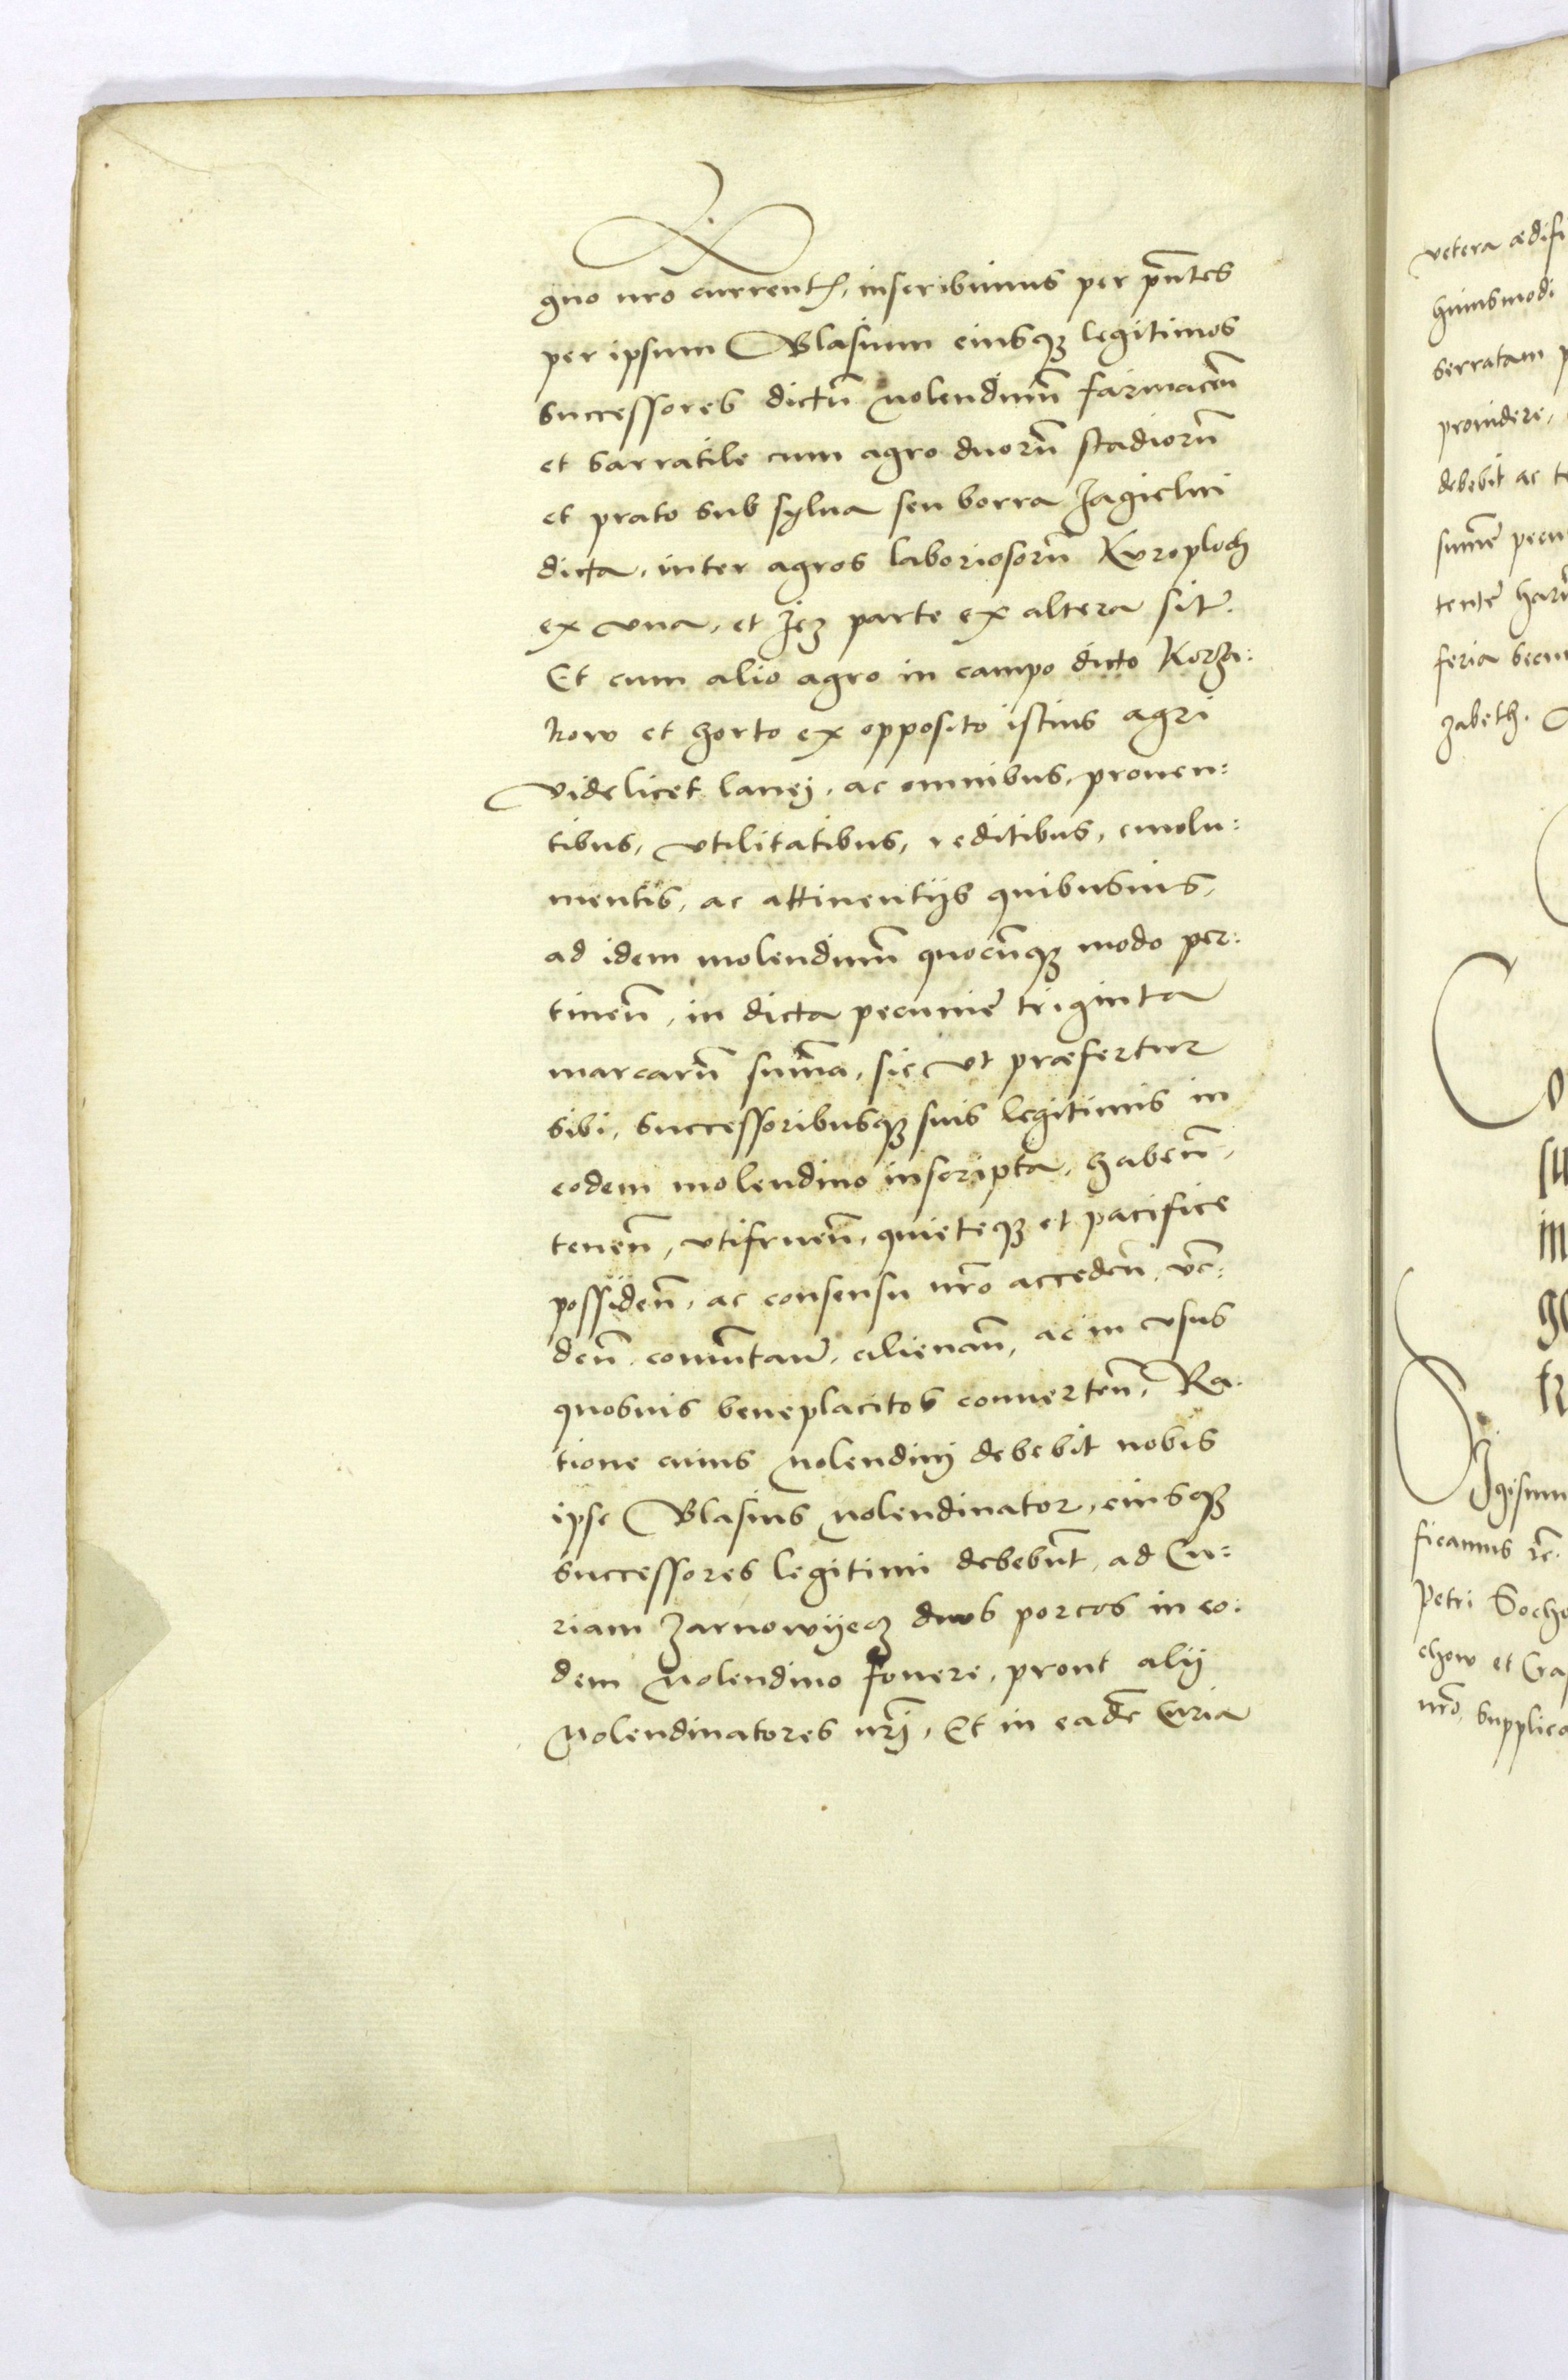 gno nro currenti, inscribimus per pntes
per ipsum Blasium eiusq3 legitimos
successores dictũ Molendinũ farinaceũ
et sarratile cum agro duorũ stadiorũ
et prato sub sylua seu borra Jagielni
dicta, inter agros laboriosorũ Kuroploch
ex vna, et Jez parte ex altera sitẽ.
Et cum alio agro in campo dicto Korza:
kow et horto ex opposito istius agri
Videlicet lanei, ac omnibus, prouen:
tibus, vtilitatibus, reditibus, emolu:
mentis, ac attinentijs quibusuis,
ad idem molendinũ quocunq3 modo per:
tineñ, in dicta pecuniẽ triginta
marcarũ sum̃a, sic vt præfertur
sibi, successoribusq3 suis legitimis in
eodem molendino inscripta, habeñ,
teneñ, vtifrueñ, quieteq3 et pacifice
possideñ, ac consensu nro accedeñ, vẽ:
deñ, com̃utañ, alienañ, ac in vsus
quosuis beneplacitos conuerteñ, Ra:
tione cuius Molendinj debebit nobis
ipse Blasius Molendinator, eiusq3
successores legitimi debebũt, ad Cu:
riam Zarnowijecz duos porcos in eo:
dem Molendino fouere, prout alij
Molendinatores nrj, Et in eadẽ Curia
vetera ædifi
huiusmodi
serratam
prouidere,
debebit ac
sum̃ẽ pecu
tentẽ harũ
feria secu
zabeth.
igismu
ficamus
Petri Socho
chow et
nro, supplica